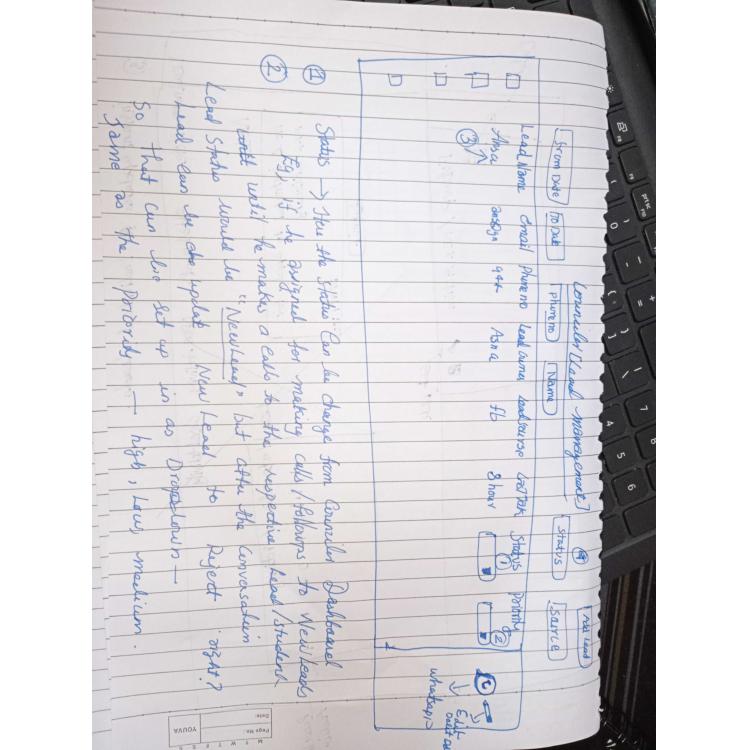 Councilor [Lead management]
Add Lead
From Date To Date phone no Name Status Source
Lead Name Email Phone no Lead owner Lead sourse Status Priority
Ansa 944 Asna fb 8 hour 1 2
3
Edit
whatsapp
1 Status → Here the status can be change from Councilor Dashboard
2 Eg, if he assigned for making calls/followups to New Leads
until he makes a calls to the respective Lead/student
Lead Status would be "New Lead" but after the conversation
Lead can be also update New Lead to Reject right?
So that can be set up in as Dropdown —
Same as the Priority — high, Low, medium.
YOUVA
Page No.:
Date:
M T W T F S